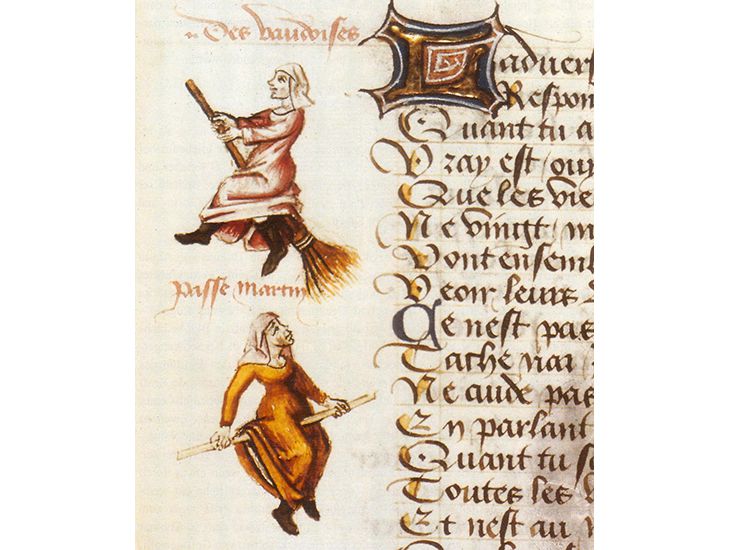 Des vaudoises
Passe martin
Ladvers
Respon
Quant tu a
Vray est / ouy
Que les vie
Ne vingt / m
Vont ensemb
Veoir leurs
Ce nest pas
Tache nai
Ne cuide pas
En parlant
Quant tu
Toutes les
Et nest au